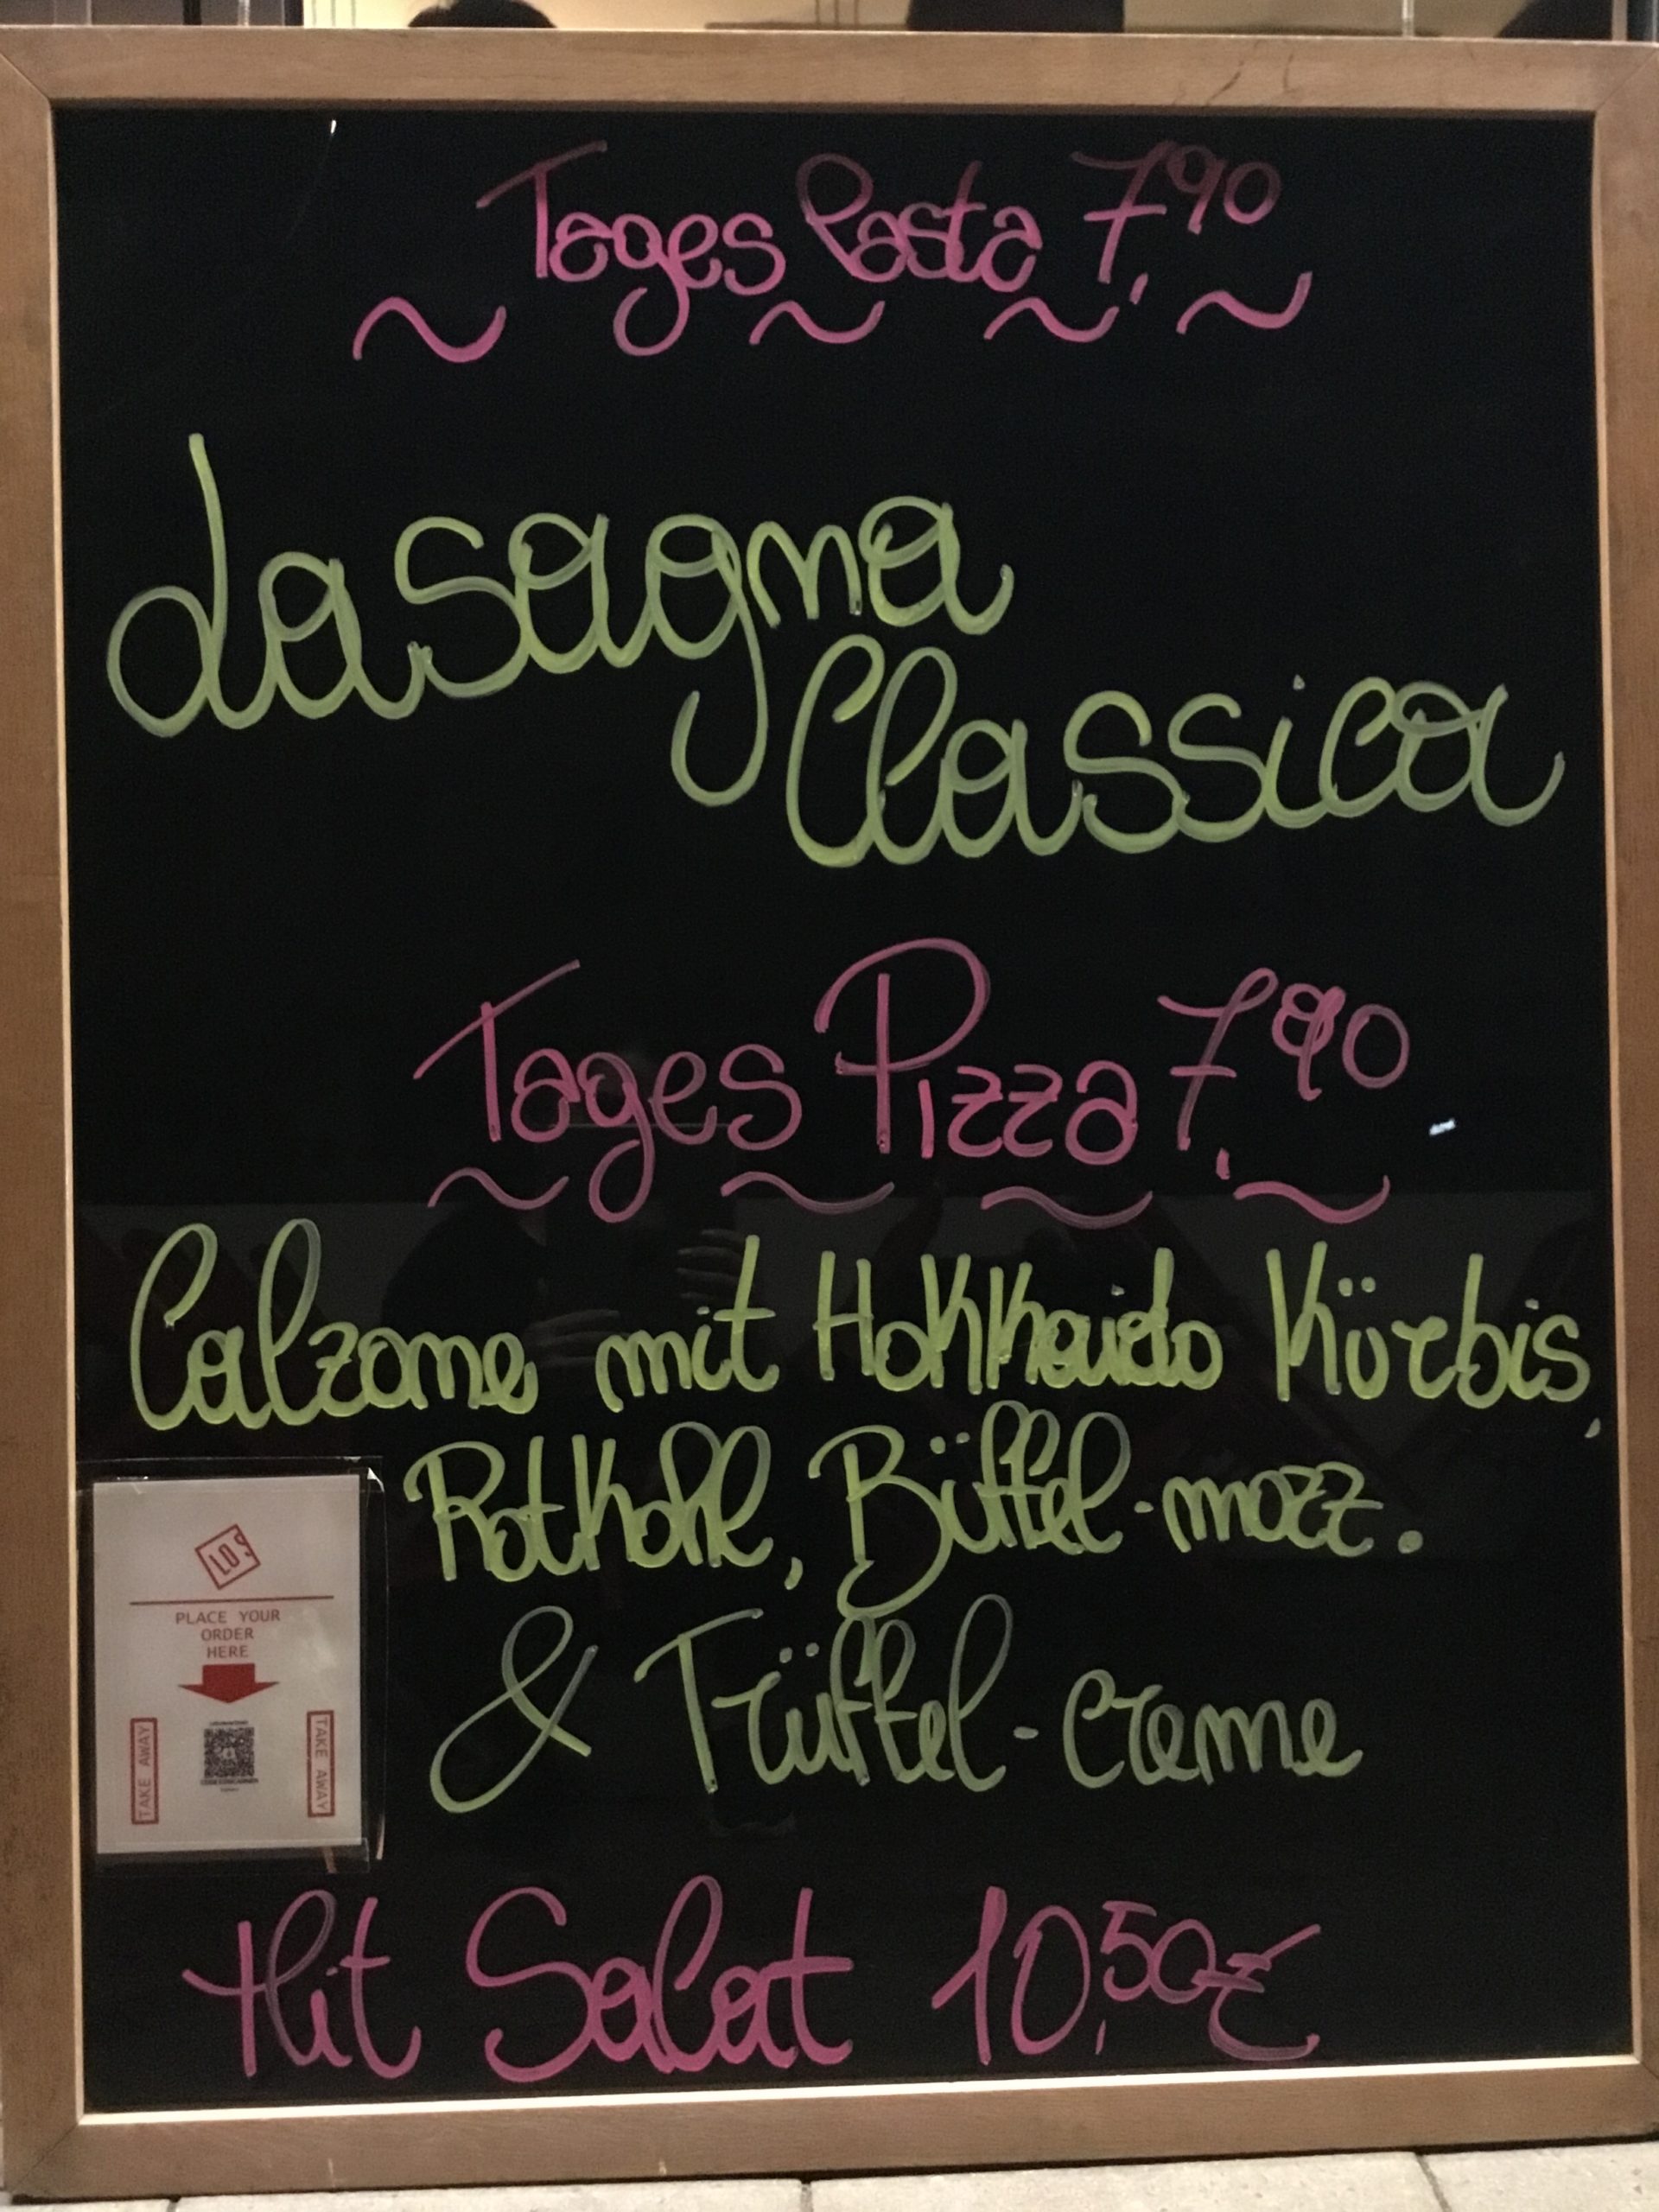 Tages Pasta 7,90
Lasagna
Classica
Tages Pizza 7,90
Calzone mit Hokkaido Kürbis,
Rotkohl, Büffel-mozz.
& Trüffel-creme
LOS
PLACE YOUR
ORDER
HERE
TAKE AWAY
TAKE AWAY
Hit Salat 10,50€